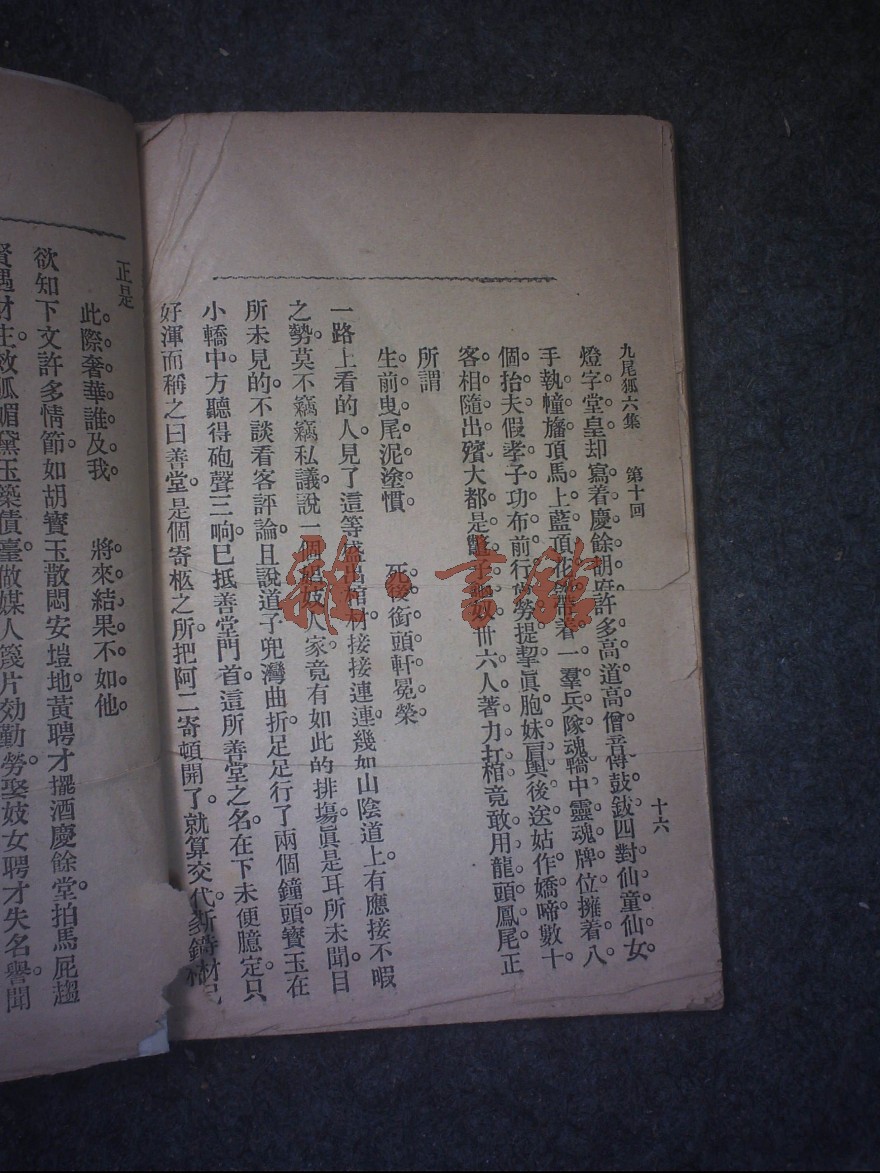 九尾狐六集　第十回　十六
燈字堂皇却寫着慶餘胡府許多高道高僧音樽鼓鈸四對仙童仙女。
手執幢旛頂馬上藍頂花翎帶着一羣兵隊魂轎中靈魂牌位擁着八
個抬夫假孝子功布前行賞勞提挈眞胞妹肩輿後送姑作嬌啼數十
客相隨出殯大都是鼈子龜奴卅六人著力扛棺竟敢用龍頭鳳尾正
所謂
生前曳尾泥塗慣。　死後銜頭軒冕榮
一路上看的人見了這等盛出棺材接接連連幾如山陰道上。有應接不暇
之勢莫不竊竊私議說一個妓人家竟有如此的排塲眞是耳所未聞目
所未見的。不談看客評論且說道子兜灣曲折足足行了兩個鐘頭寳玉在
小轎中方聽得砲聲三响巳抵善堂門首。這所善堂之名。在下未便臆定只
好渾而稱之曰善堂。是個寄柩之所。把阿二寄頓開了。就算交代。
正是
此際奢華誰及我。　將來結果不如他。
欲知下文許多情節。如胡寳玉散悶安塏地。黃聘才擺酒慶餘堂拍馬屁趨
賢遇財主。效狐媚黛玉築債臺。做媒人篾片効勤勞。娶妓女聘才失名譽聞